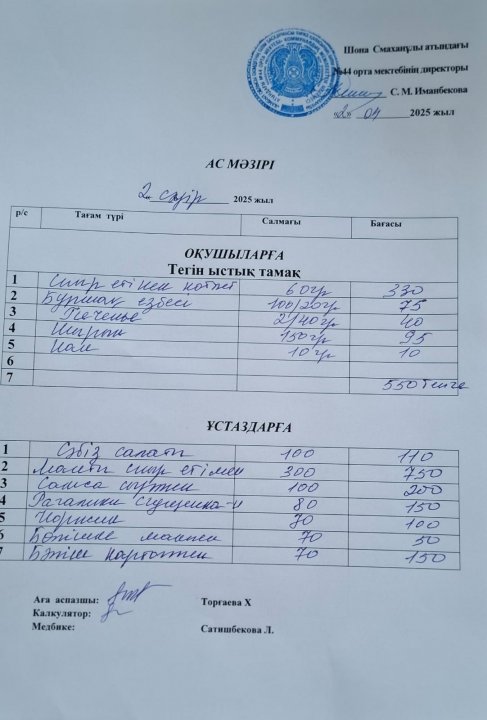 Шона Смаханұлы атындағы
№44 орта мектебінің директоры
С. М. Иманбекова
«2» 04 2025 жыл
АС МӘЗІРІ
2 сәуір 2025 жыл
р/с Тағам түрі Салмағы Бағасы
ОҚУШЫЛАРҒА
Тегін ыстық тамақ
1 Сиыр етінен котлет 60гр 330
2 Бұршақ езбесі 100/20гр 75
3 Печенье 2/40гр 40
4 Шырын 150гр 95
5 Нан 10гр 10
6
7 550 теңге
ҰСТАЗДАРҒА
1 Сәбіз салаты 100 110
2 Манты сиыр етімен 300 750
3 Самса 100 200
4 Рагалики сгущенка 80 150
5 70 100
6 Бәтішке 70 50
7 Бәтіш картоппен 70 150
Аға аспазшы: Торғаева Х
Калкулятор:
Медбике: Сатишбекова Л.